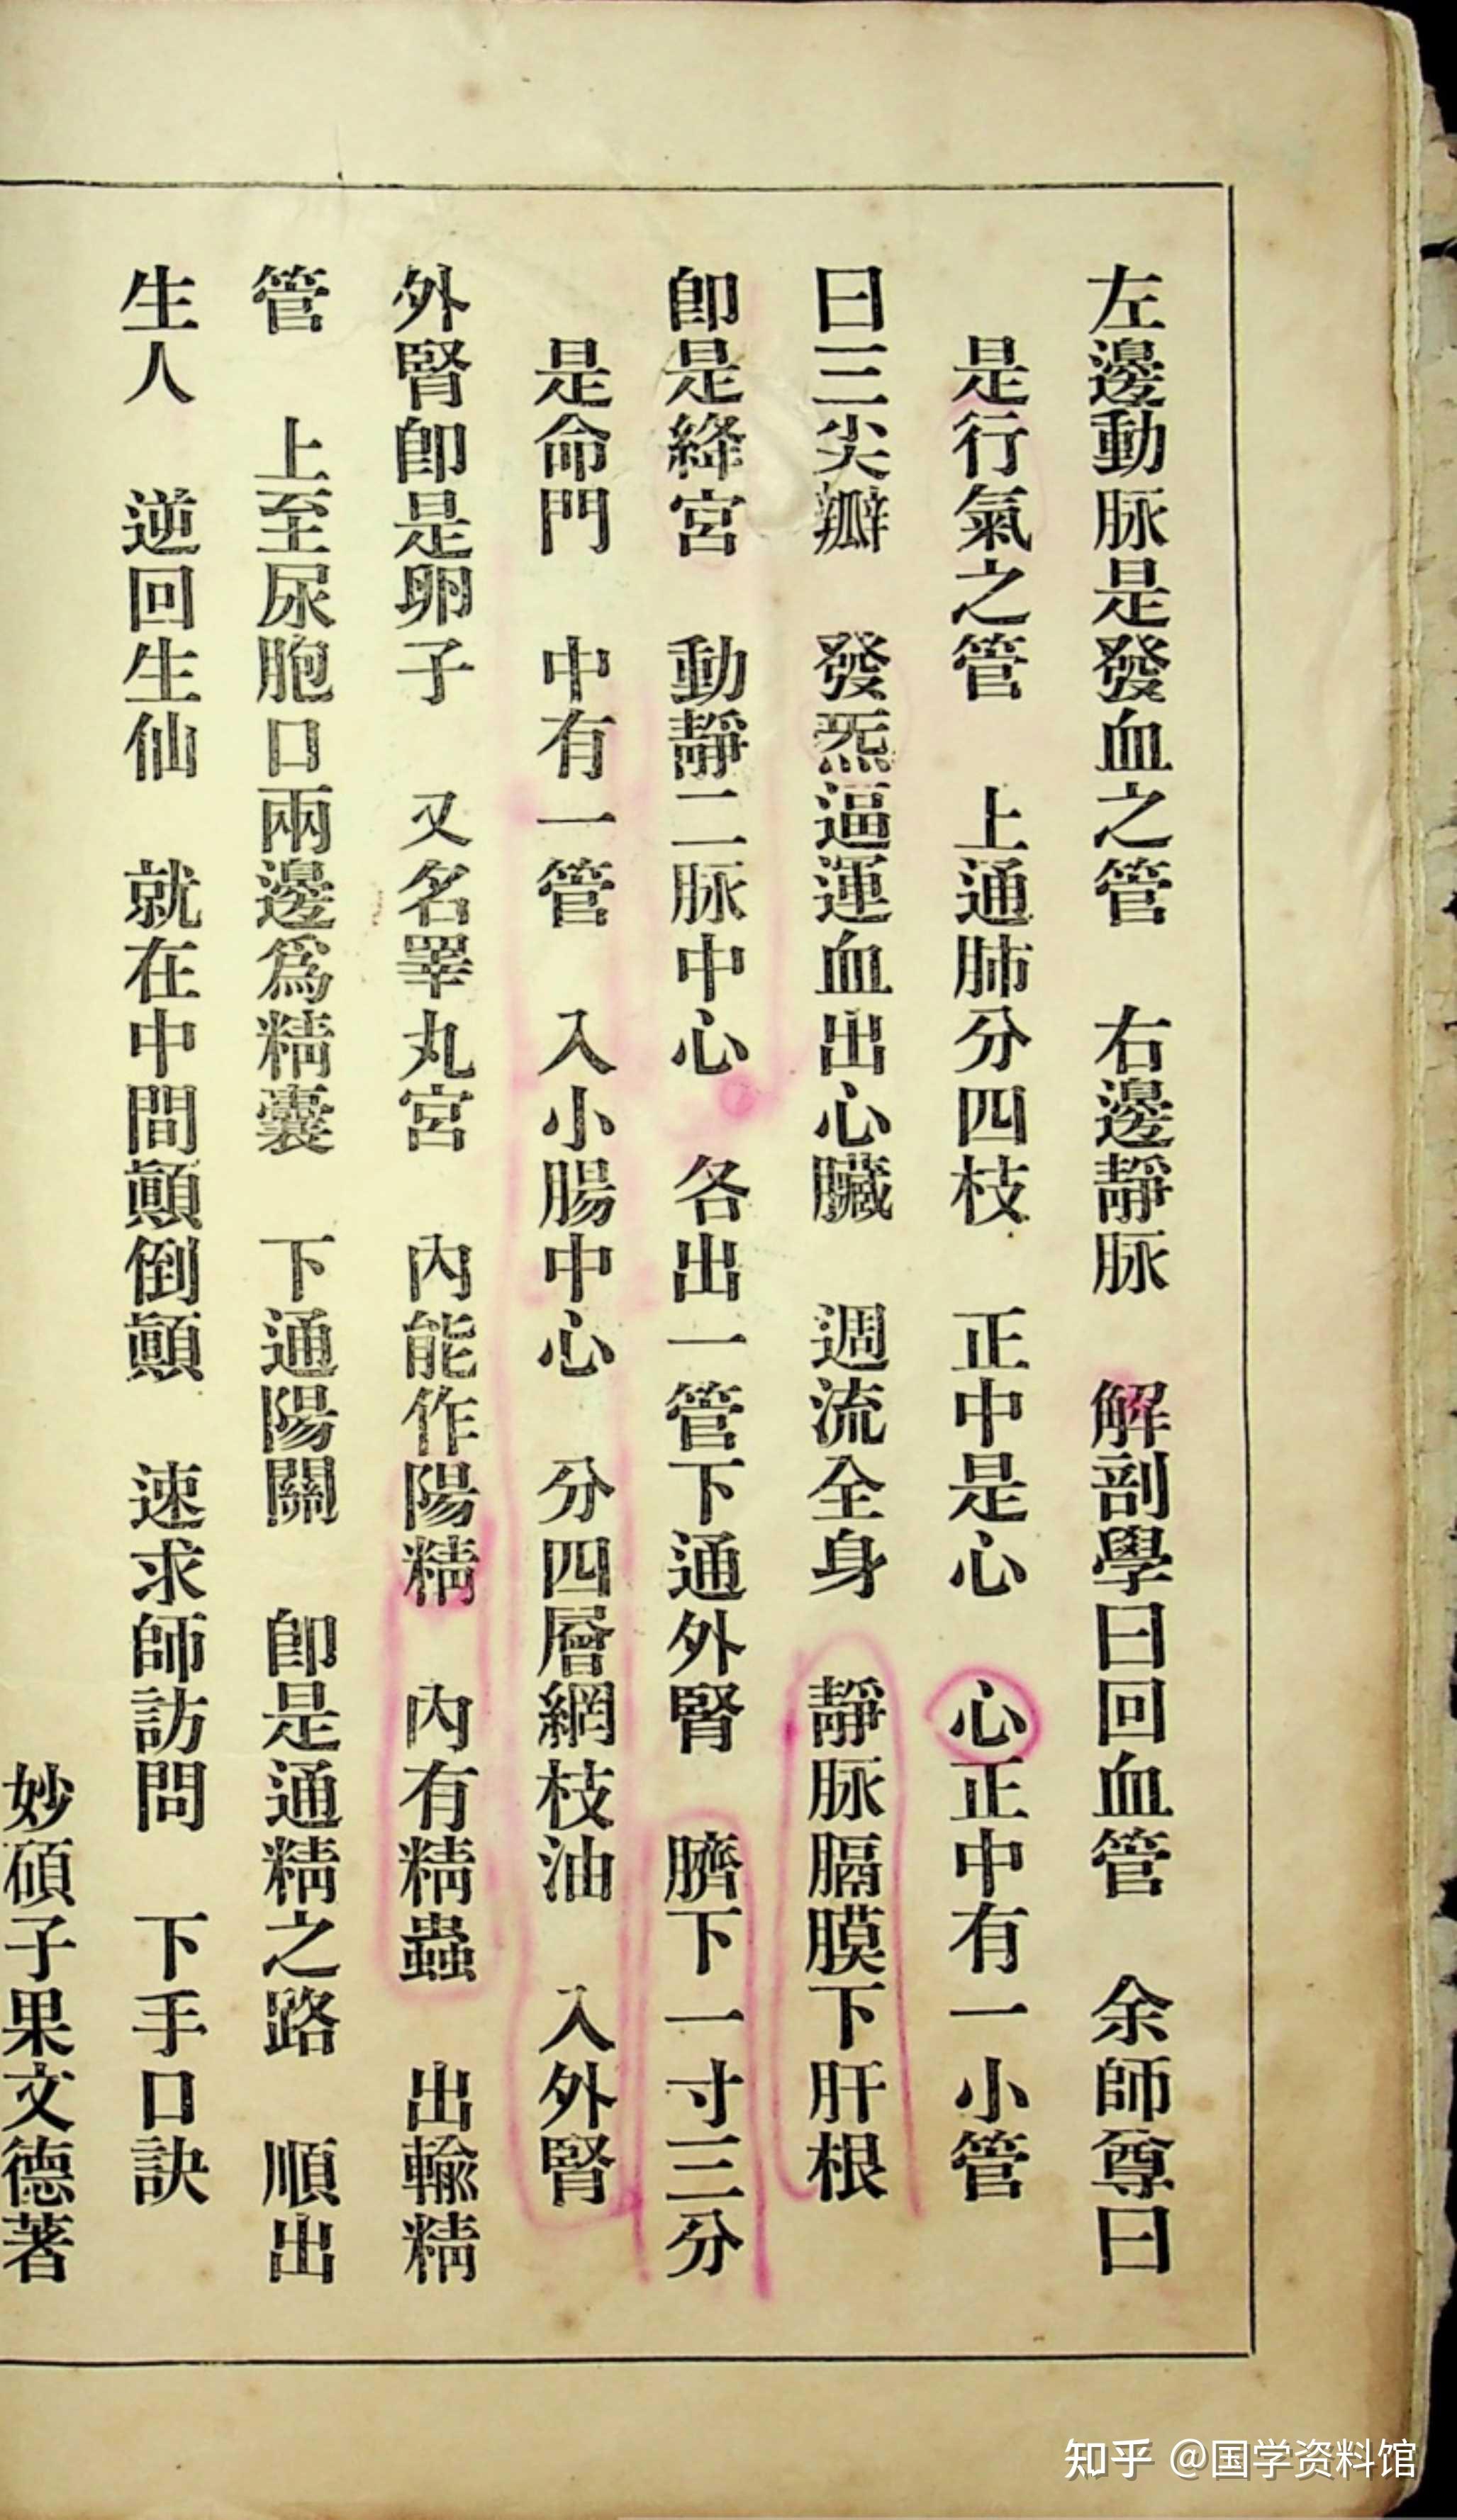 左邊動脉是發血之管　右邊靜脉　解剖學曰回血管　余師尊曰
是行氣之管　上通肺分四枝　正中是心　心正中有一小管
曰三尖瓣　發炁逼運血出心臟　週流全身　靜脉膈膜下肝根
卽是絳宮　動靜二脉中心　各出一管下通外腎　臍下一寸三分
是命門　中有一管　入小腸中心　分四層網枝油　入外腎
外腎卽是卵子　又名睪丸宮　內能作陽精　內有精蟲　出輸精
管　上至尿胞口兩邊爲精囊　下通陽關　卽是通精之路　順出
生人　逆回生仙　就在中間顚倒顚　速求師訪問　下手口訣
妙碩子果文德著
知乎 @国学资料馆